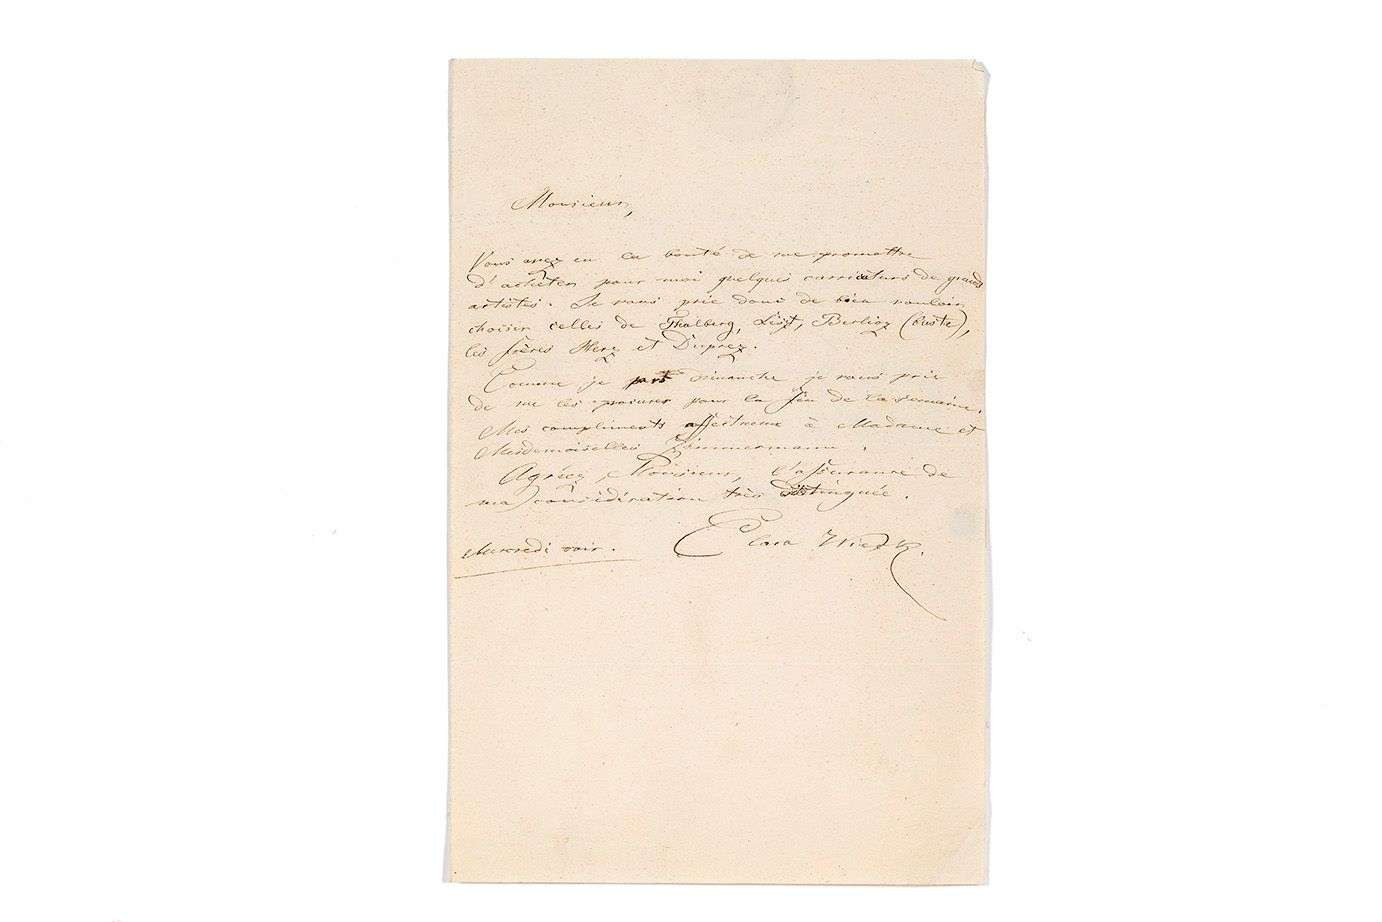 Monsieur,
Vous avez eu la bonté de me promettre
d'acheter pour moi quelques carricaturs de grands
artistes. Je vous prie donc de bien vouloir
choisir celles de Thalberg, Liszt, Berlioz (buste),
les frères Herz et Duprez.
Comme je part Dimanche je vous prie
de me les procurer pour la fin de la semaine.
Mes compliments affectueux à Madame et
Mesdemoiselles Zimmermann.
Agréez, Monsieur, l'assurance de
ma considération très distinguée.
Clara Wieck.
Mercredi soir.